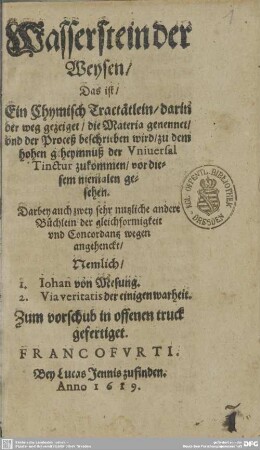 Wasserstein der
Weysen/
Das ist/
Ein Chymisch Tractätlein/ darin
der weg gezeiget/ die Materia genennet/
vnd der Proceß beschrieben wird/ zu dem
hohen geheymnuß der Vniuersal
Tinctur zukommen/ vor die-
sem niemalen ge-
sehen.
Darbey auch zwey sehr nutzliche andere
Büchlein der gleichformigkeit
vnd Concordantz wegen
angehenckt/
Nemlich/
1. Iohan von Mesung.
2. Via veritatis der einigen warheit.
Zum vorschub in offenen truck
gefertiget.
FRANCOFVRTI.
Bey Lucas Jennis zufinden.
Anno 1619.
OEFFENTL. BIBLIOTHEK
DRESDEN
DFG